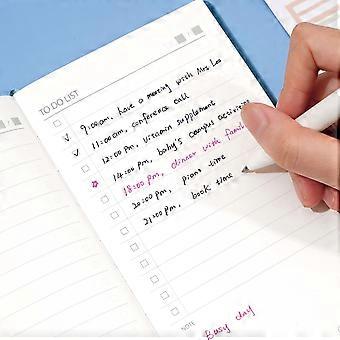 TO DO LIST
9:00am, have a meeting with Mrs Lee
11:00am, conference call
12:00 pm, vitamin supplement
14:00 pm, baby's campus activities
18:00 pm, dinner with family
20:00 pm, piano time
21:00 pm, book time
NOTE
Busy day